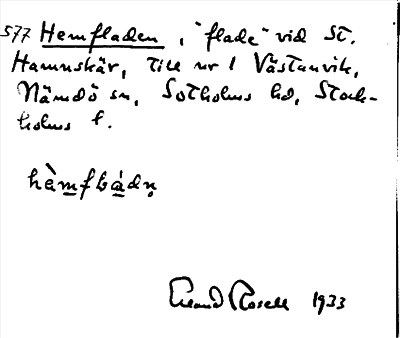 577 Hemfladen, "flade" vid St.
Hamnskär, till nr 1 Västanvik,
Nämdö sn, Sotholms hd, Stock-
holms l.
hèmfládṇ
Erland Rosell 1933